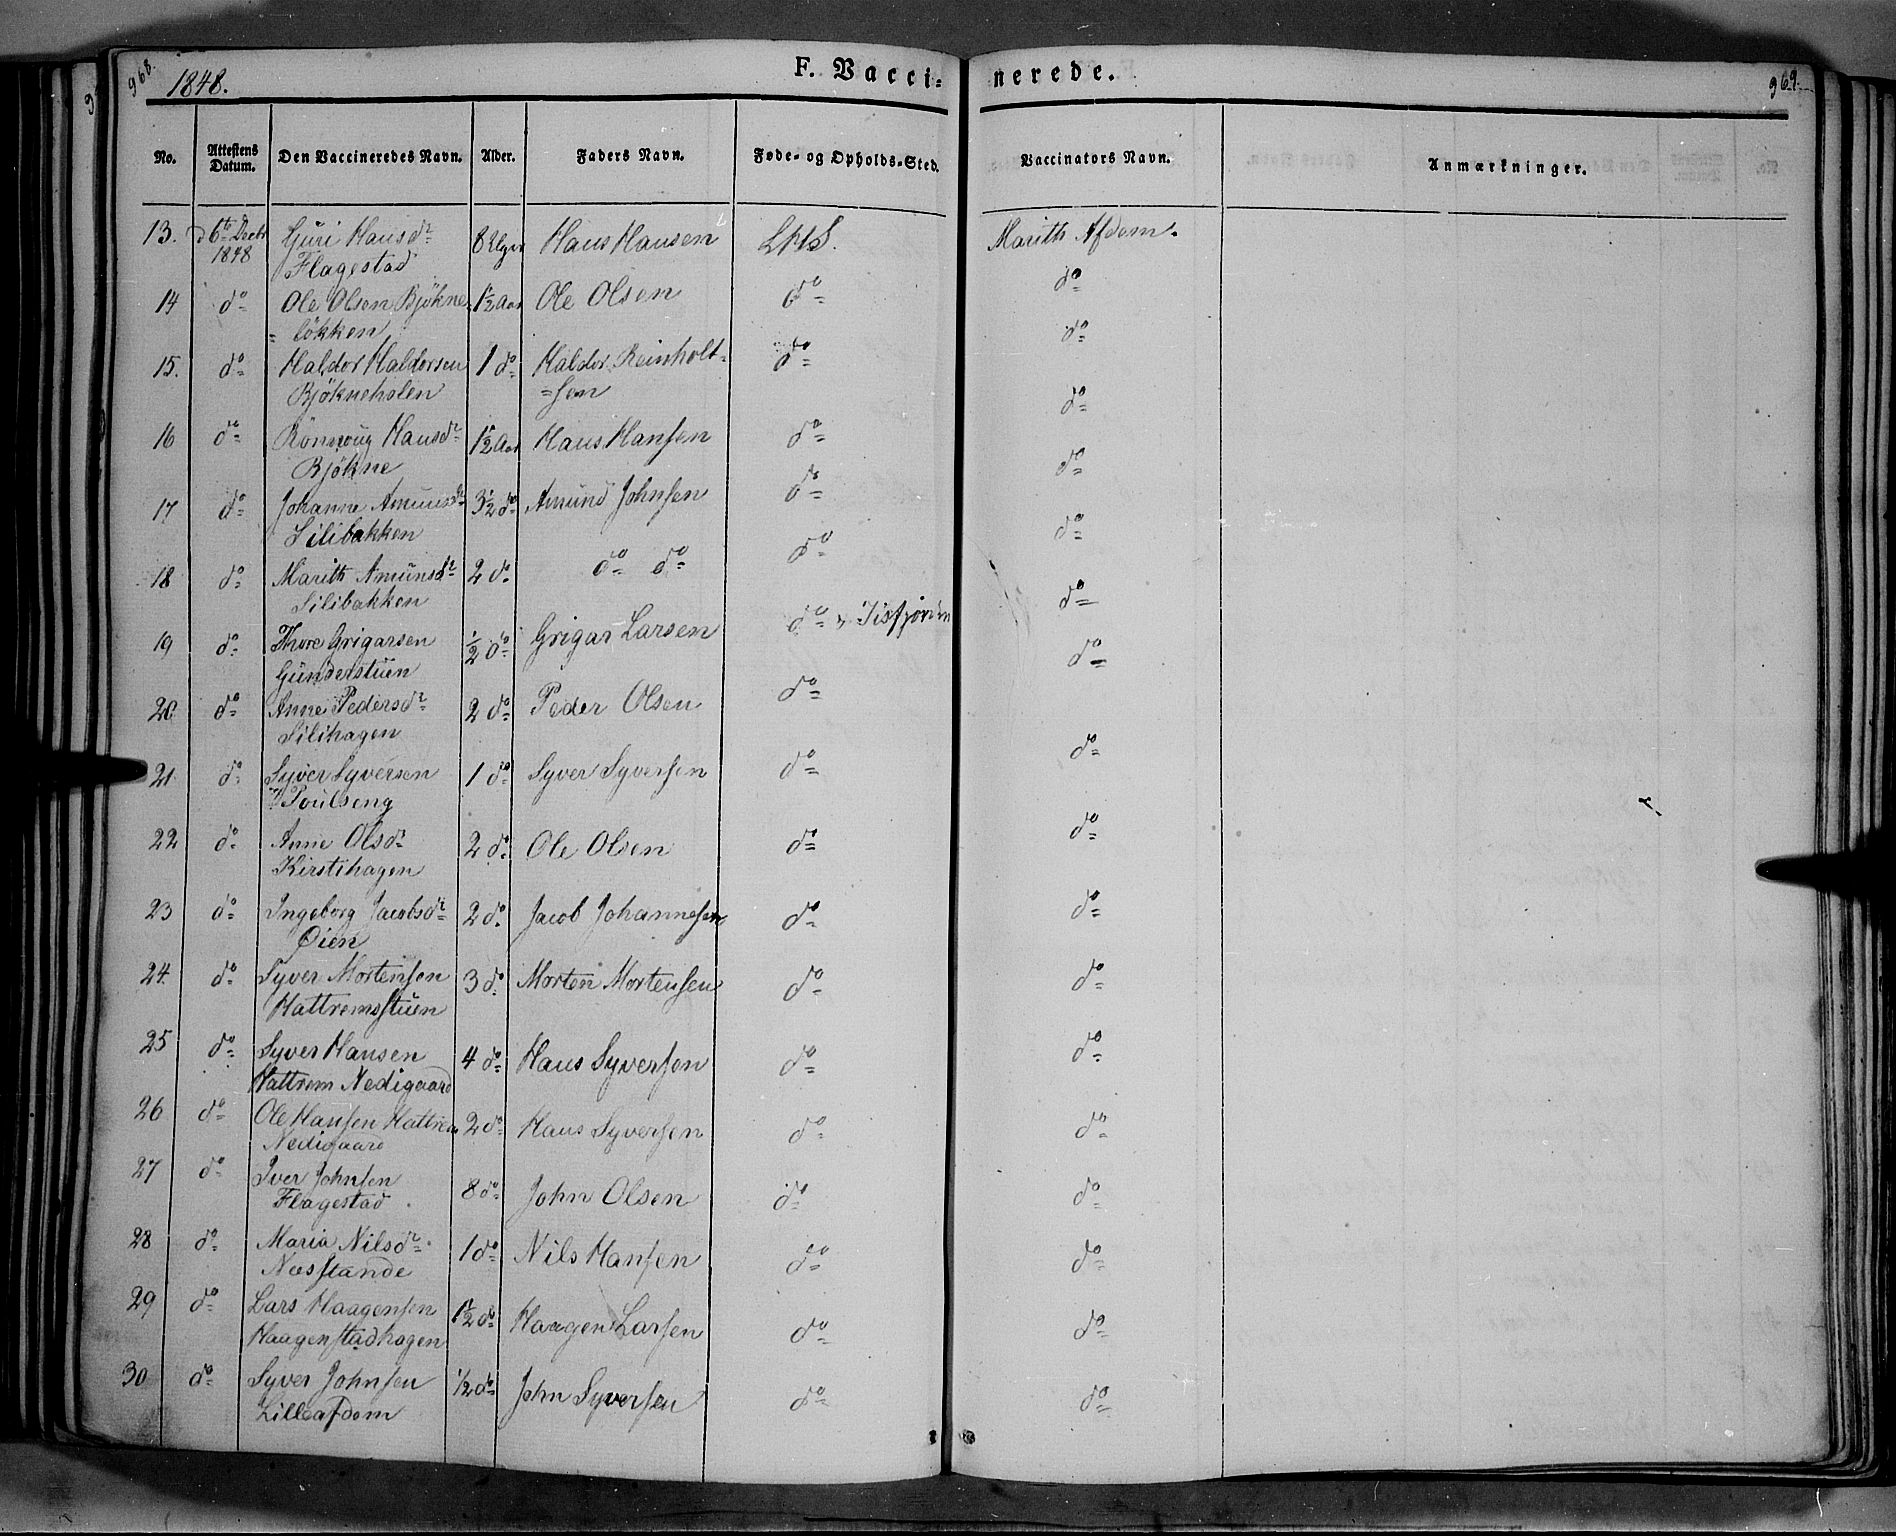 968.
1848.
F. Vacci-
nerede.
969.
No.
Attestens Datum.
Den Vaccineredes Navn.
Alder.
Faders Navn.
Føde- og Opholds-Sted.
Vaccinators Navn.
Anmærkninger.
13. d 6te Decbr 1848 Guri Hansdr Flagestad 8 Uger Hans Hansen Marith Afdem.
14 do Ole Olsen Bjökne= =lökken 1½ Aar Ole Olsen do do
15. do Haldor Haldorsen Bjökneholen 1 do Haldor Reinholt= =sen do do
16 do Rönnoug Hansdr Bjökne 1½ Aar Hans Hansen do do
17 do Johanne Amunsdr Lilibakken 3½ do Amund Johnsen do do
18 do Marith Amunsdr Lilibakken 2 do do do do do
19 do Thore Grigarsen Gunderstuen ½ do Grigar Larsen do do
20 do Anne Pedersdr Lilihagen 2 do Peder Olsen do do
21. do Syver Syversen Poulseng 1 do Syver Syversen do do
22 do Anne Olsdr Kirstihagen 2 do Ole Olsen do do
23 do Ingeborg Jacobsdr Öien 2 do Jacob Johannesen do do
24. do Syver Mortensen Hattremsstuen 3 do Morten Mortensen do do
25 do Syver Hansen Hattrem Nedigaard 4 do Hans Syversen do do
26 do Ole Hansen Hattrem Nedigaard 2 do Hans Syversen do do
27 do Iver Johnsen Flagestad 8 do John Olsen do do
28 do Maria Nilsdr Næsstande 1 do Nils Hansen do do
29 do Lars Haagensen Haagenstadhagen 1½ do Haagen Larsen do do
30 do Syver Johnsen Lilleafdem ½ do John Syversen do do